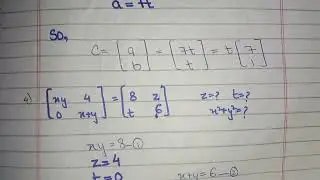 a = 7t
So,
C = [a b] = [7t t] = t [7 1]
4) [xy 4 0 x+y] = [8 z t 6] z=? t=?
x²+y²=?
xy = 8 - ①
z = 4
t = 0
x+y = 6 - ②